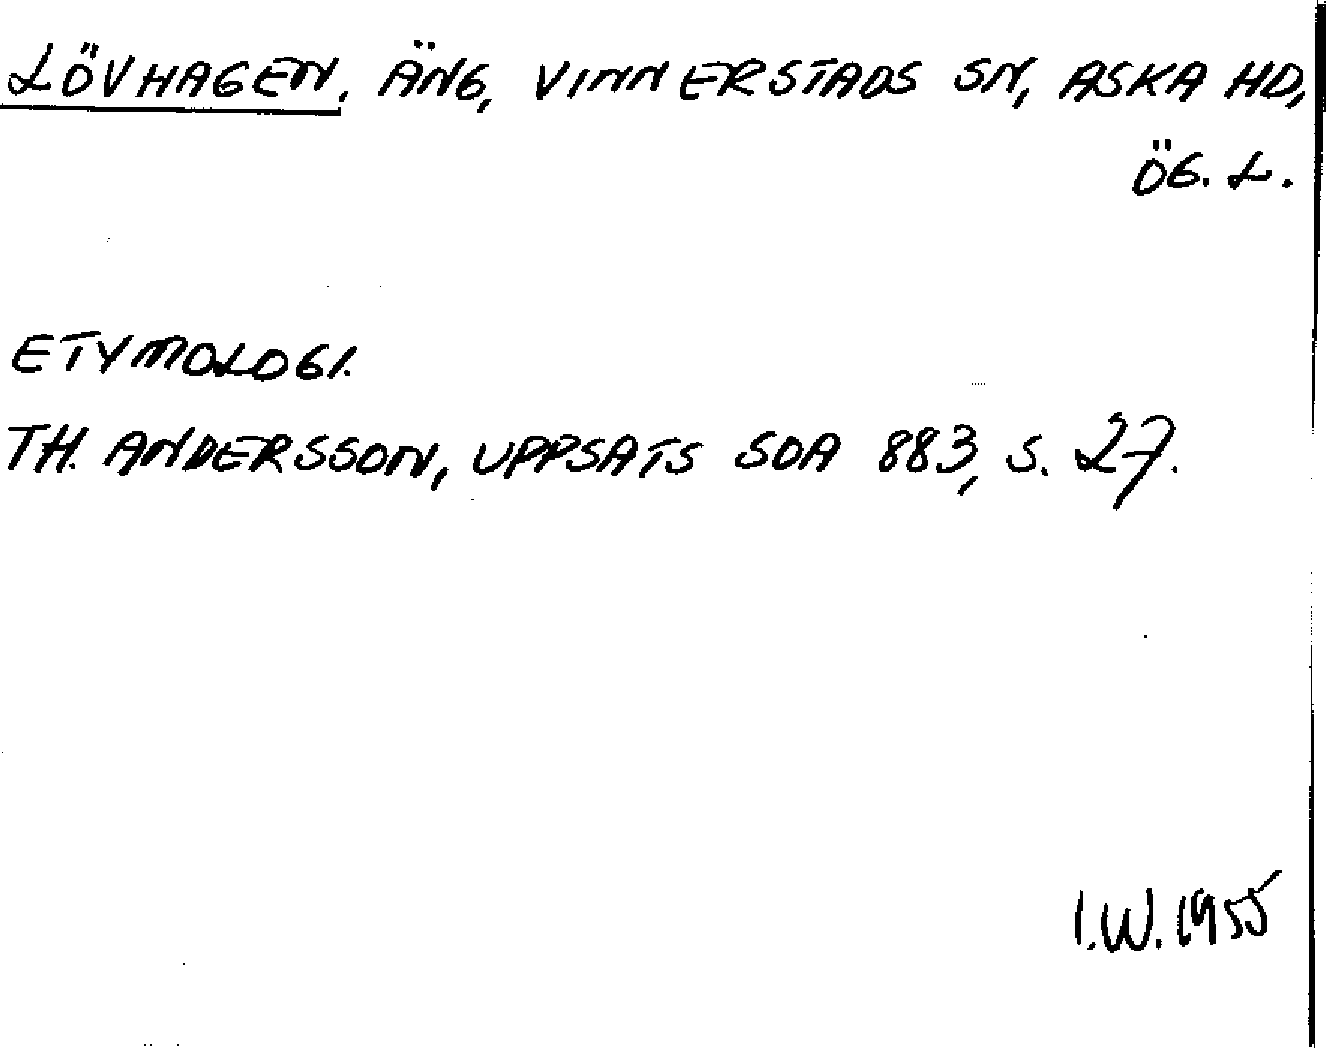 LÖVHAGEN, ÄNG, VINNERSTADS SN, ASKA HD,
ÖG. L.
ETYMOLOGI.
TH. ANDERSSON, UPPSATS SOA 883, S. 27.
I.W. 1955